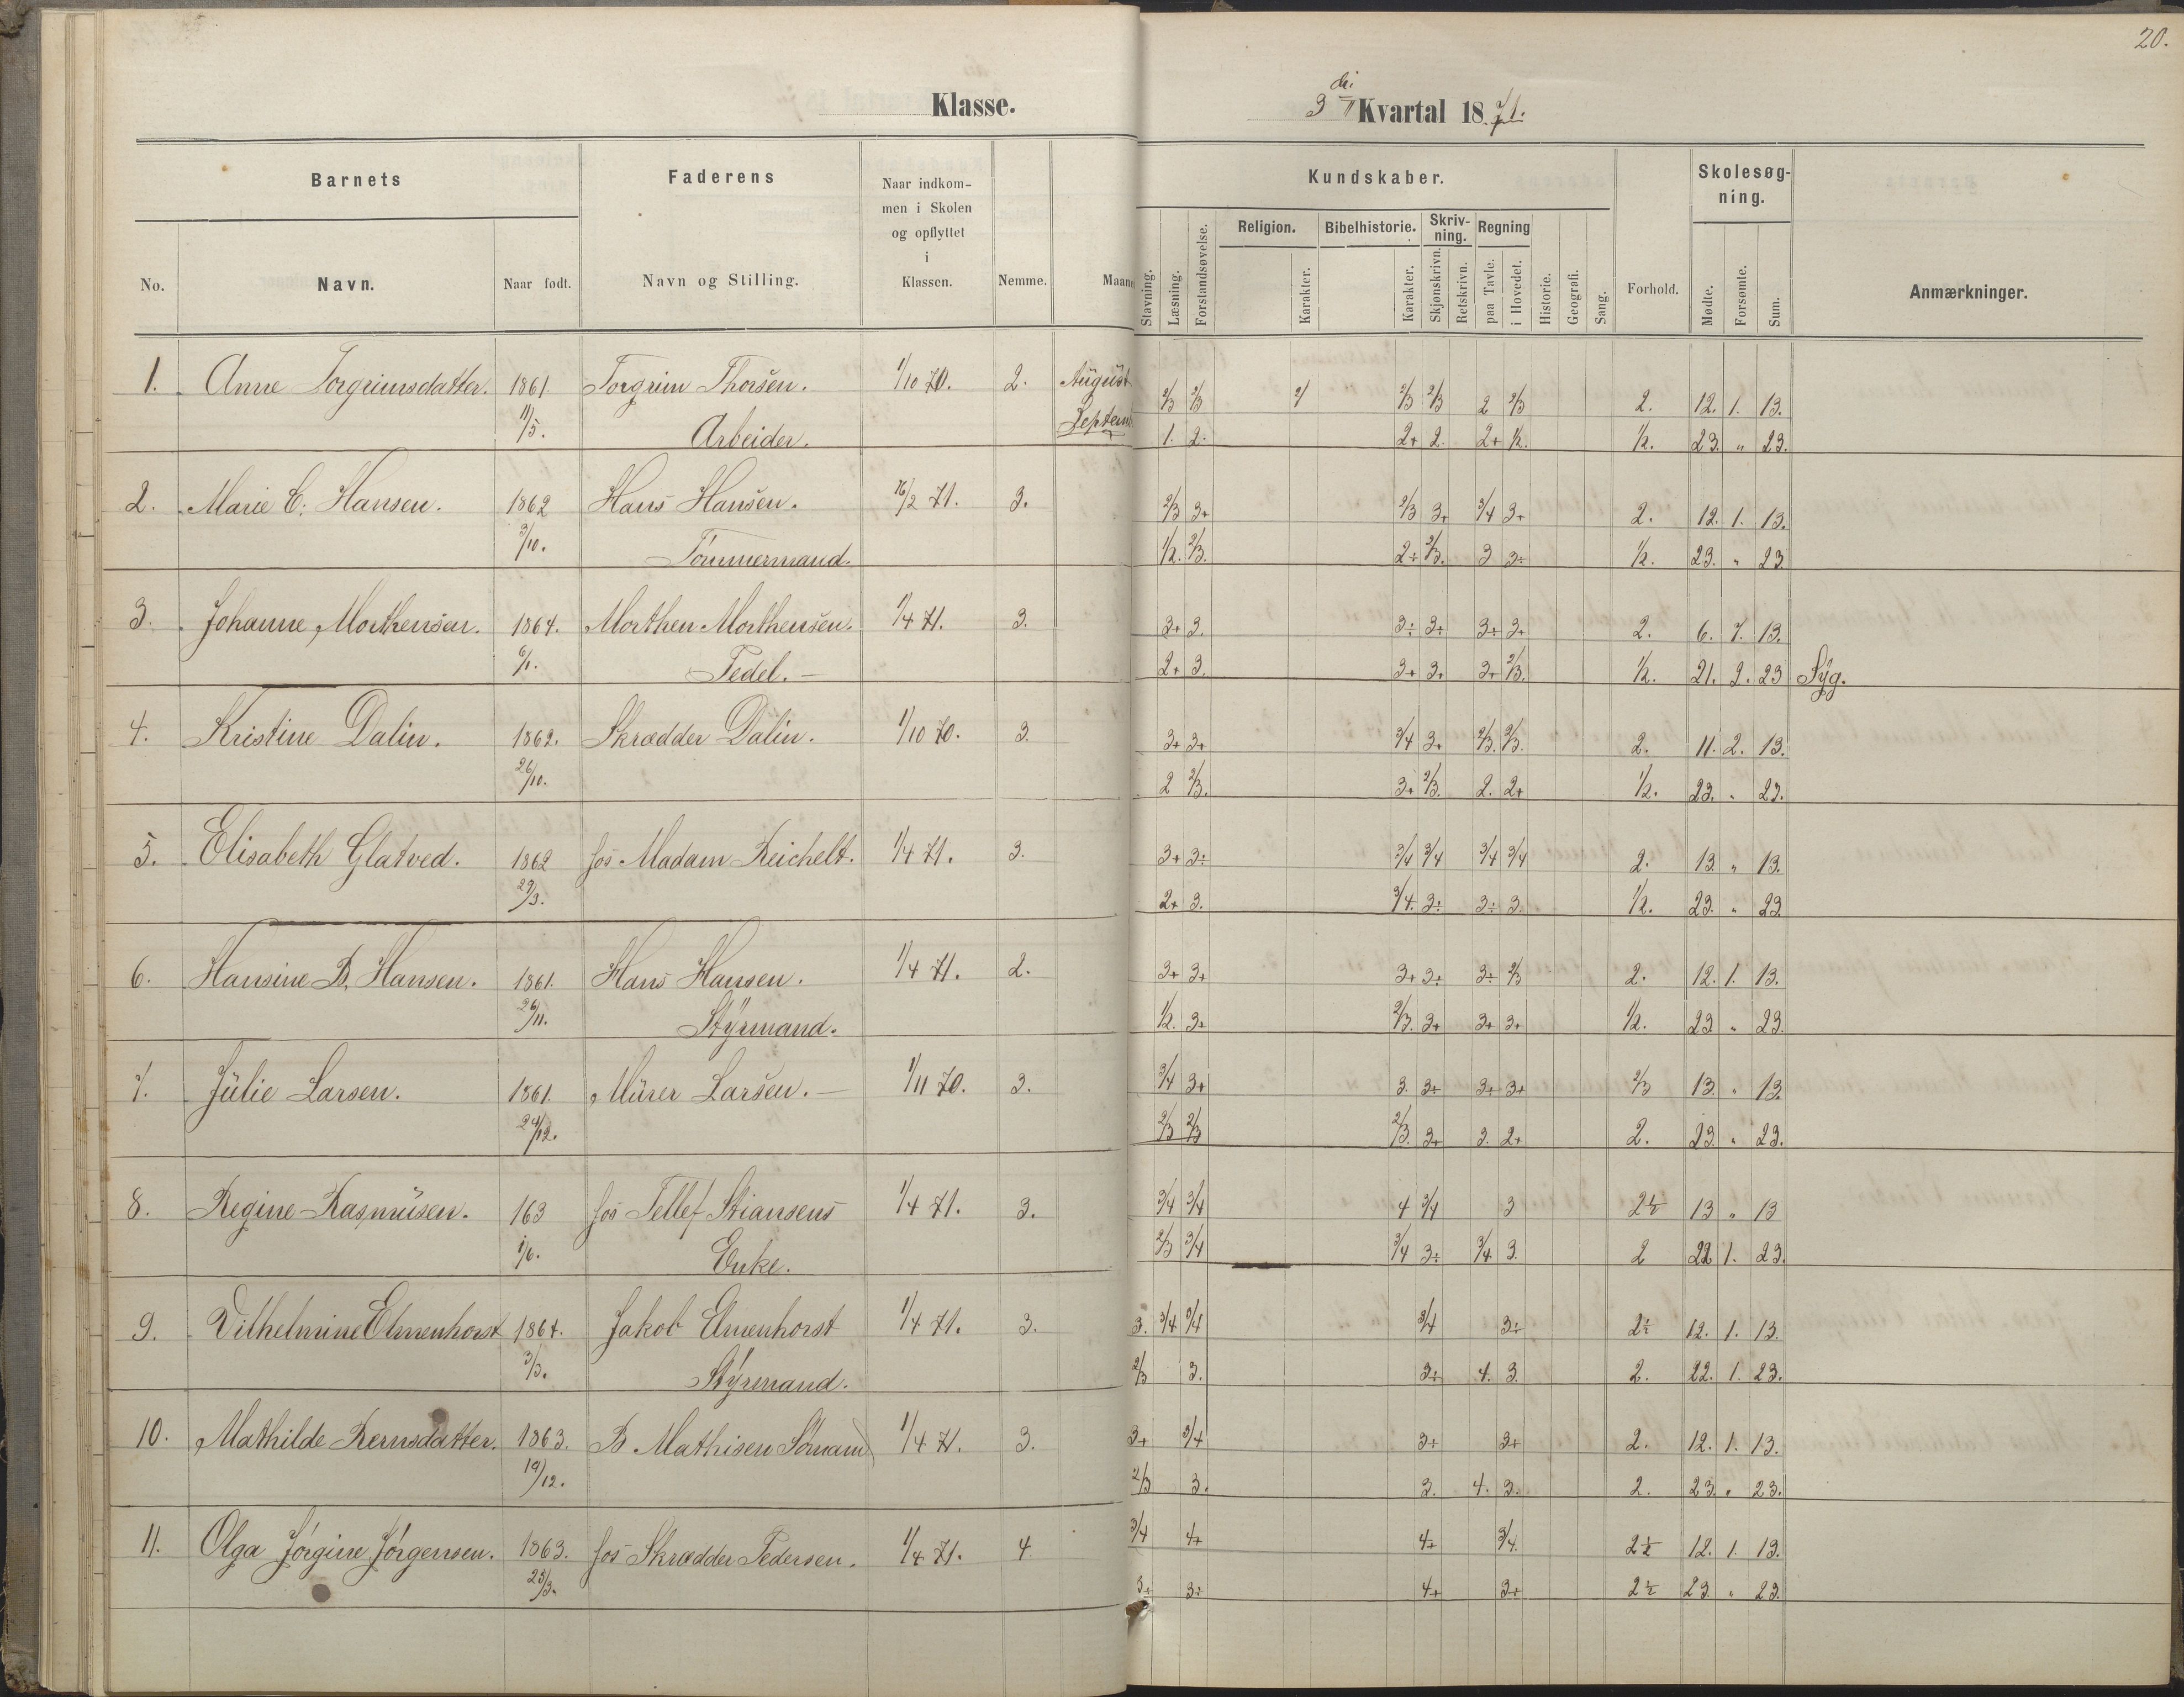 20.
Klasse.
3die Kvartal 1871.
Barnets
Faderens
Naar indkom-
men i Skolen
og opflyttet
i
Klassen.
No.
Navn.
Naar født.
Navn og Stilling.
Nemme.
Maaned
Kundskaber.
Skolesøg-
ning.
Stavning.
Læsning.
Forstandsøvelse.
Religion.
Bibelhistorie.
Skriv-
ning.
Regning
Karakter.
Karakter.
Skjønskrivn.
Retskrivn.
paa Tavle.
i Hovedet.
Historie.
Geografi.
Sang.
Forhold.
Mødte.
Forsømte.
Sum.
Anmærkninger.
1. Anne Torgrimsdatter. 1861. Torgrim Thorsen. 1/10 70. 2. August 2/3 2/3 2/ 2/3 2/3 2 2/3 2. 12. 1. 13.
11/5. Arbeider. Septem 1. 2. 2+ 2. 2+ 1/2. 1/2. 23. " 23.
2. Marie C. Hansen. 1862 Hans Hansen. 16/2 71. 3. 2/3 3+ 2/3 3+ 3/4 3+ 2. 12. 1. 13.
3/10. Tømmermand. 1/2. 2/3. 2÷ 2/3. 3 3÷ 1/2. 23. " 23
3. Johanne Morthensen. 1864. Morthen Morthensen. 1/4 71. 3. 3+ 3. 3÷ 3+ 3÷ 3+ 2. 6. 7. 13.
6/1. Pedel. 2+ 3. 3+ 3+ 3+ 2/3. 1/2. 21. 2. 23 Syg.
4. Kristine Dalin. 1862. Skrædder Dalin. 1/10 70. 3. 3+ 3+ 3/4 3+ 2/3. 2/3. 2. 11. 2. 13.
26/10. 2 2/3. 3+ 2/3. 2. 2+ 1/2. 23. " 23.
5. Elisabeth Glatved. 1862 hos Madam Reichelt. 1/4 71. 3. 3+ 3÷ 3/4 3/4 3/4 3/4 2. 13. " 13.
29/3. 2+ 3. 3/4. 3÷ 3÷ 3. 1/2. 23. " 23
6. Hansine B. Hansen. 1861. Hans Hansen. 1/4 71. 2. 3+ 3+ 3+ 3÷ 3÷ 2/3 2. 12. 1. 13.
26/11. Styrmand. 1/2. 3+ 2/3. 3+ 3+ 3+ 1/2. 23 " 23.
7. Julie Larsen. 1861. Murer Larsen. 1/11 70. 3. 3/4 3+ 3. 3+ 3+ 3+ 2/3 13. " 13.
24/12. 2/3 2/3 2/3. 3+ 3. 2+ 2. 23. " 23.
8. Regine Rasmusen. 163 hos Tellef Stiansens 1/4 71. 3. 3/4 3/4 4 3/4 3 2½ 13 " 13
1/6. Enke. 2/3 3/4 3/4 3÷ 3/4 3. 2 22 1. 23.
9. Vilhelmine Elmenhorst 1864. Jakob Elmenhorst 1/4 71. 3. 3. 3/4 3/4 3/4 3÷ 2½ 12. 1. 13.
3/3. Styrmand. 2/3 3. 3÷ 4. 3. 2. 22. 1. 23.
10. Mathilde Bernsdatter. 1863. B Mathisen Sømand 1/4 71. 3. 3+ 3/4 3+ 3+ 2. 12. 1. 13.
19/12. 2/3 3. 3. 4. 3. 2. 23. " 23.
11. Olga Jørgine Jørgensen. 1863. hos Skrædder Pedersen. 1/4 71. 4. 3/4 4+ 4+ 3/4. 2½ 12. 1. 13.
23/3. 3+ 3÷ 4+ 3+ 2½ 23. " 23.